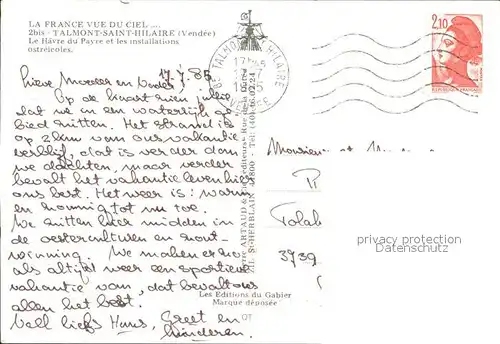 LA FRANCE VUE DU CIEL ....
2bis - TALMONT-SAINT-HILAIRE (Vendée)
Le Hâvre du Payré et les installations
ostréicoles.
17.7.85
Lieve Moeder en
Op de kaart zien jullie
dat we in een waterrijk ge
bied zitten. Het strand is
op 2km van ons vakantie
verblijf, dat is verder dan
we dachten, maar verder
bevalt het vakantieleven hier
ons best. Het weer is: warm
en zonnig tot nu toe.
We zitten hier midden in
de oesterculturen en zout-
winning. We maken er zo
als altijd weer een sportieve
vakantie van, dat bevalt ons
allen het best.
Veel liefs Hans, Greet en
kinderen.
TALMONT ST HILAIRE
2,10
REPUBLIQUE FRANÇAISE
Monsieur et
3739
ARTAUD
Editeurs - Rue de la
Z.I. ST-HERBLAIN 44800 - Tél. (40) 46.02.24
Les Editions du Gabier
Marque déposée
privacy protection
Datenschutz